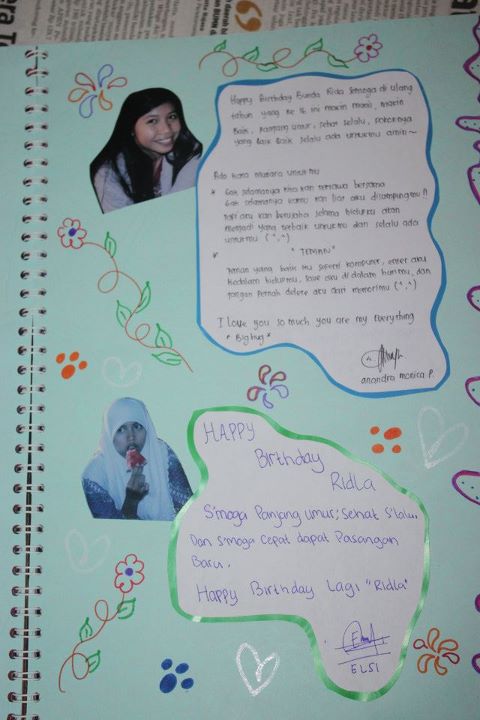 Happy Birthday Bunda Rida Semoga di ulang
tahun yang ke 16 ini makin manis, makin
baik, panjang umur, sehat selalu, pokoknya
yang baik baik selalu ada untukmu amin~
Ada kata mutiara untukmu
* Gak selamanya kita kan tertawa bersama
Gak selamanya kamu kan liat aku disampingmu!!
Tapi aku kan berusaha selama hidupku akan
menjadi yang terbaik untukmu dan selalu ada
untukmu (^.^)
* " TEMAN"
Teman yang baik itu seperti komputer, enter aku
kedalam hidupmu, save aku di dalam hatimu, dan
jangan pernah delete aku dari memorimu (^.^)
I love you so much you are my everything
* Big hug *
anandra monica P.
HAPPY
Birthday
RIDLA
S'moga Panjang umur, Sehat S'lalu..
Dan s'moga cepat dapat Pasangan
Baru.
Happy Birthday Lagi "Ridla"
ELSI